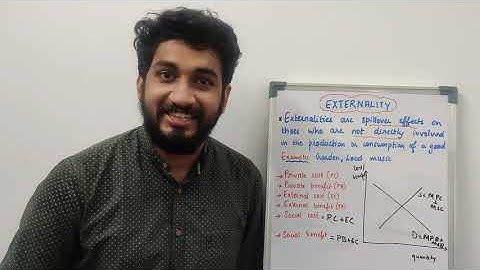 EXTERNALITY
* Externalities are spillover effects on
those who are not directly involved
in the production or consumption of a good.
Example:
Loud music
→ Private cost (PC)
→ Private benefit (PB)
→ External cost (EC)
→ External benefit (EB)
→ Social cost = PC+EC
→ Social benefit = PB+
cost/
S=MPC
MSC
D=MPB=
quantity